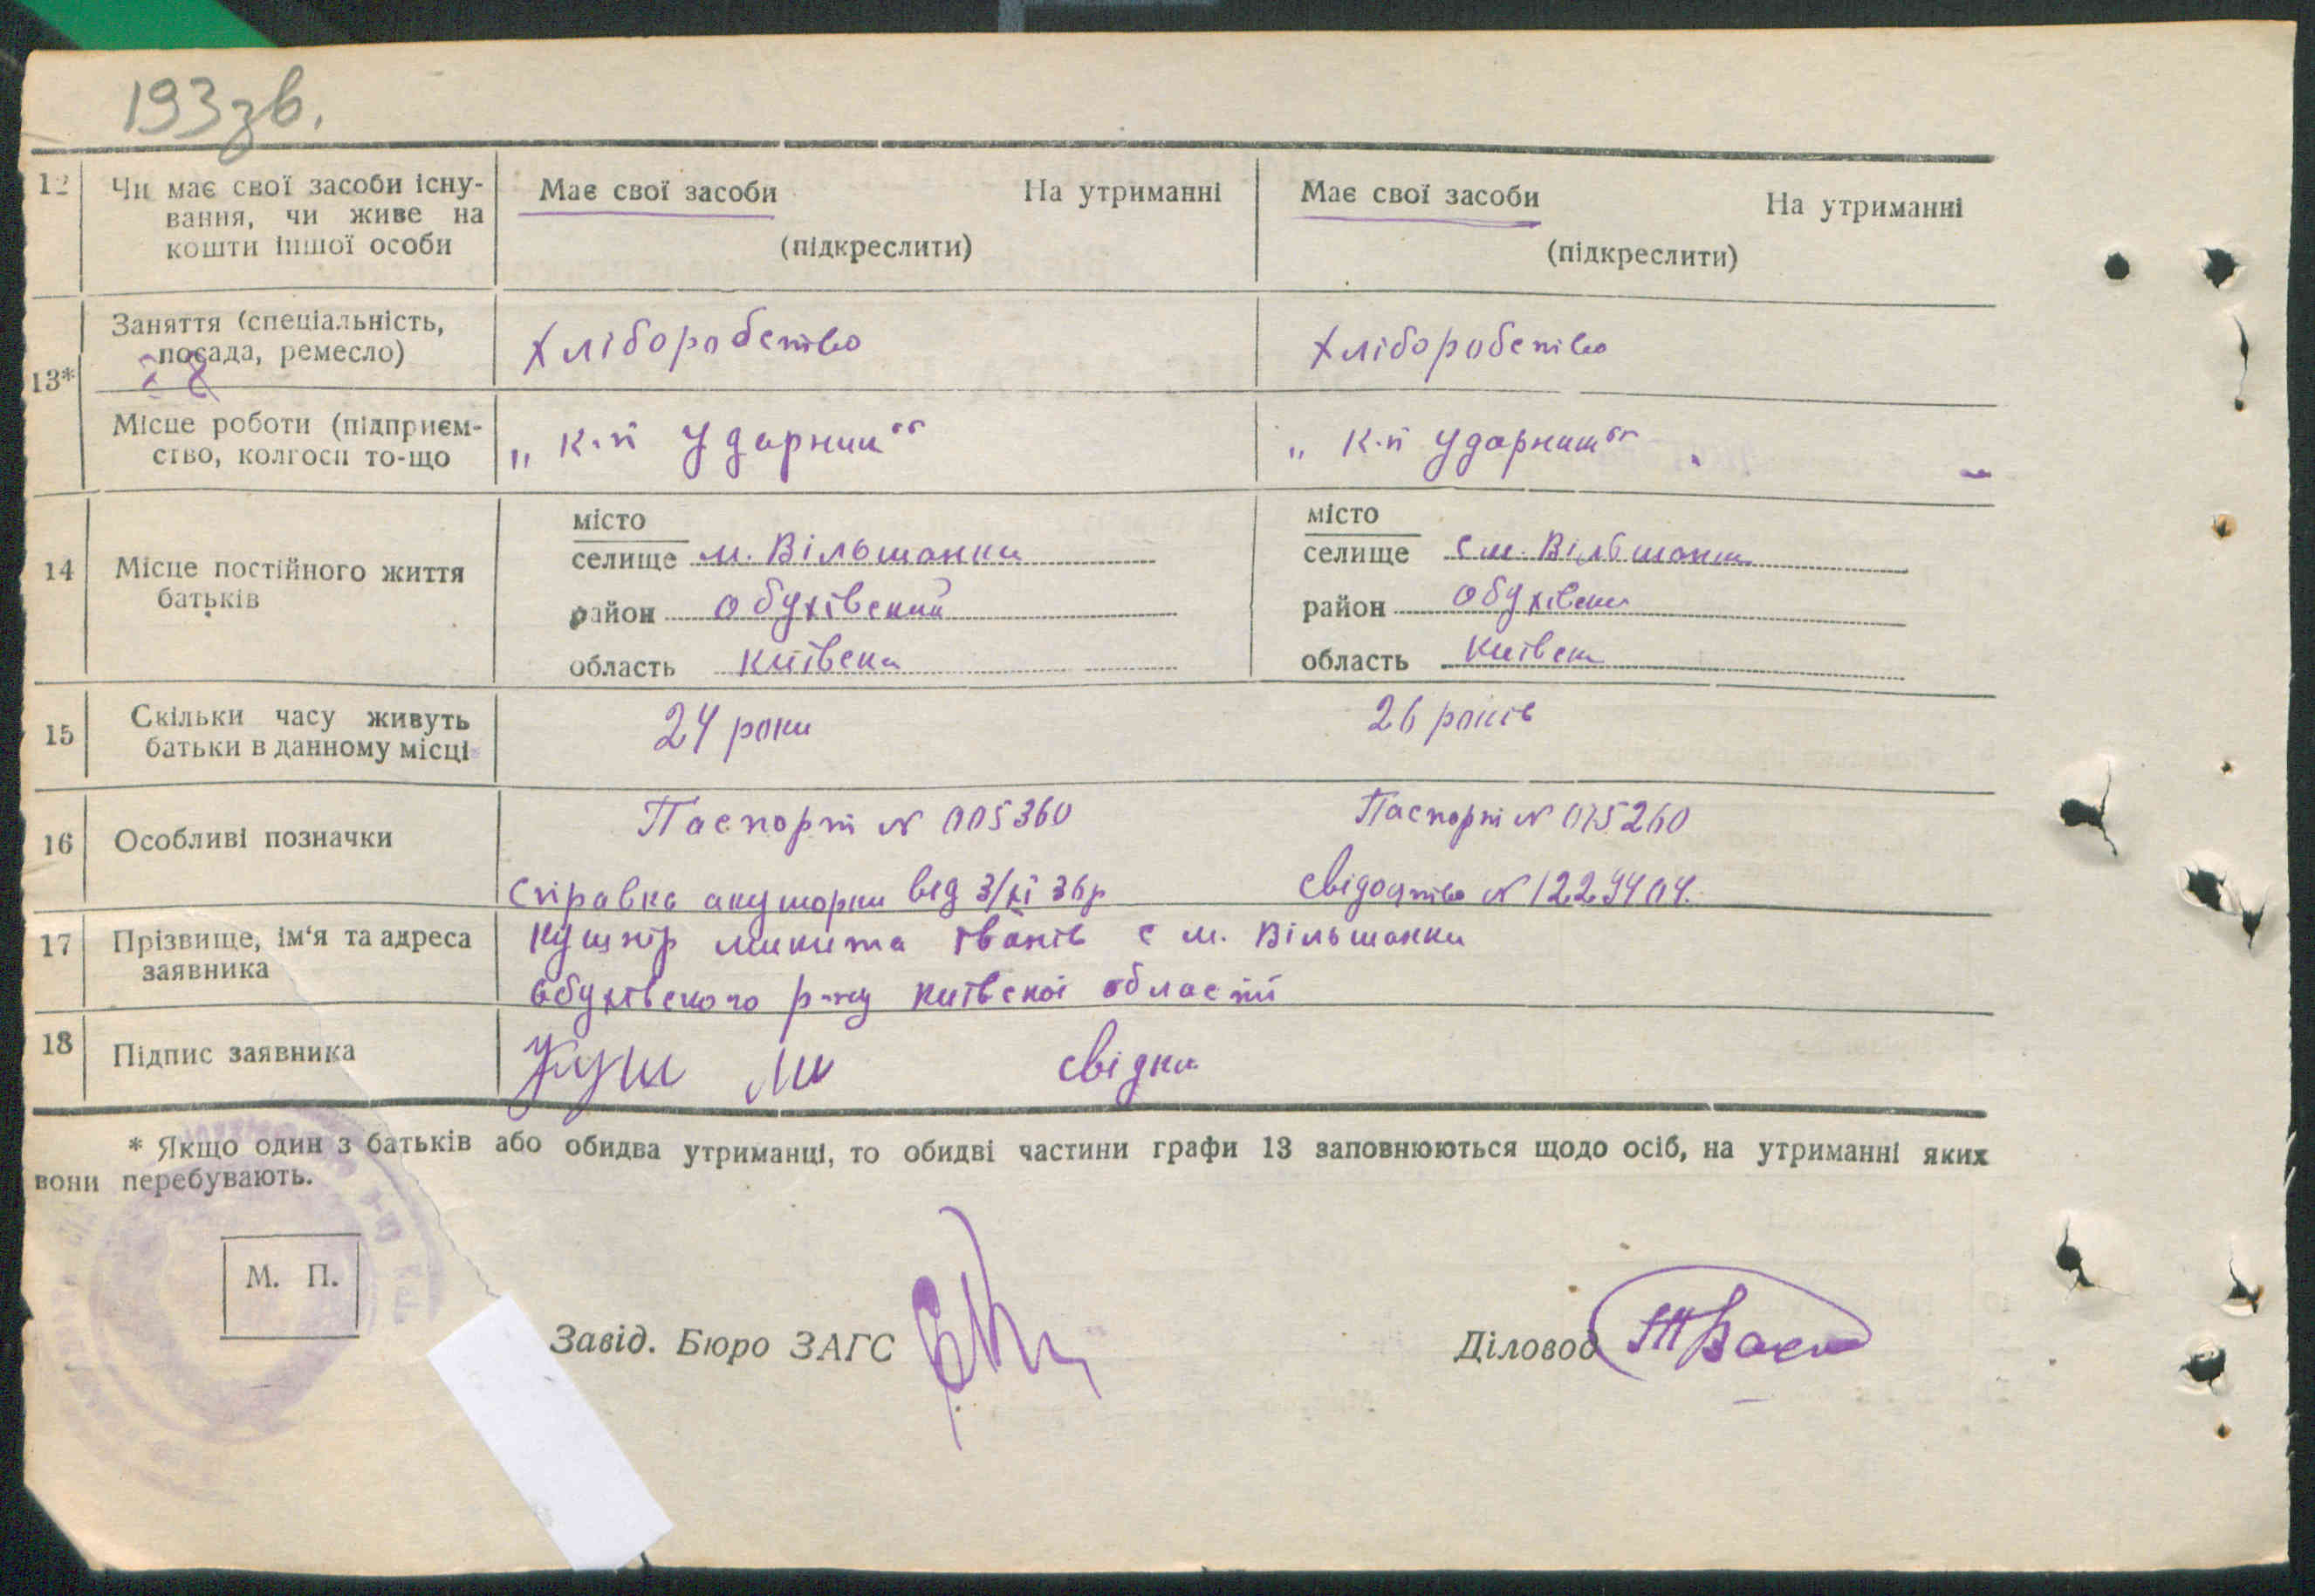 193зв.
12 Чи має свої засоби існу-
вання, чи живе на
кошти іншої особи
Має свої засоби На утриманні
(підкреслити)
Має свої засоби На утриманні
(підкреслити)
13*
Заняття (спеціальність,
посада, ремесло)
Хліборобство
Хліборобство
Місце роботи (підприєм-
ство, колгосп то-що
„ К-п Ударник“
„ К-п Ударник“
14 Місце постійного життя
батьків
місто
селище м. Вільшанки
район Обухівський
область Київська
місто
селище с м. Вільшанки
район Обухівськи
область Київськ
15 Скільки часу живуть
батьки в данному місці
24 роки
26 років
16 Особливі позначки
Паспорт N 005360
Справка акушорки від 3/XI 36р
Паспорт N 015260
Свідоцтво N 1229404.
17 Прізвище, ім‘я та адреса
заявника
Кушнір Микита Іванів с м. Вільшанки
Обухівського р-ну Київської області
18 Підпис заявника
Куш Ми свідки
* Якщо один з батьків або обидва утриманці, то обидві частини графи 13 заповнюються щодо осіб, на утриманні яких
вони перебувають.
М. П.
Завід. Бюро ЗАГС
Діловод